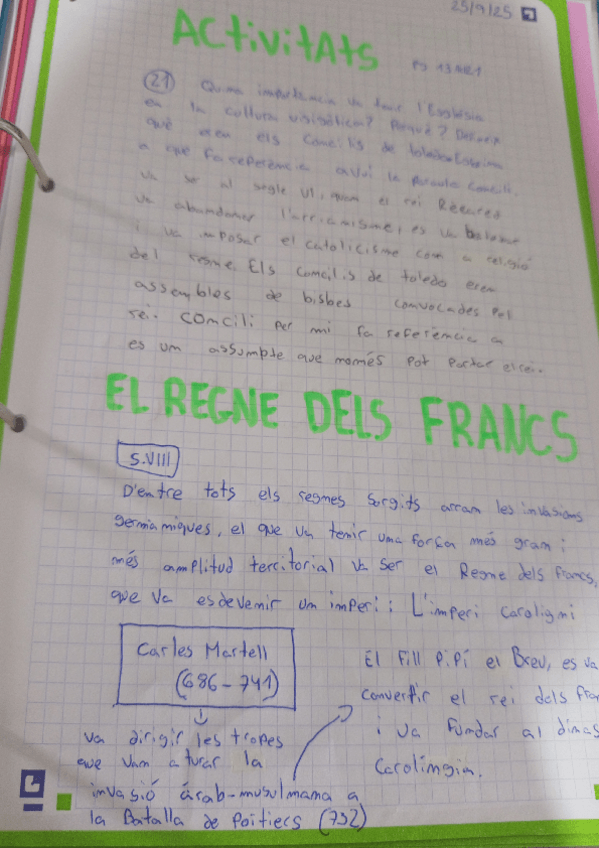 25/9/25
ACTIVITATS
(21) Quina importància va tenir l'Església
en la cultura visigòtica? Perquè?
què eren els Concilis de toledo
a que fa referència avui la paraula concili.
va ser al segle VI, quan es rei Recared
va abandonar l'arrianisme, es va
i va imposar el catolicisme com a religió
del regne. Els Concilis de toledo eren
assembles de bisbes convocades pel
rei. COncili per mi fa referència a
es um assumpte que només pot portar el rei.
EL REGNE DELS FRANCS
S.VIII
D'entre tots els regnes sorgits arram les invasions
germàmiques, el que va tenir una força més gram i
més amplitud territorial va ser el Regne dels francs,
que va esdevenir um imperi: L'imperi caroligmi
Carles Martell
(686-741)
va dirigir les tropes
que vam aturar la
invasió àrab-musulmama a
la Batalla de Poitiers (732)
El Fill Pipí el Breu, es va
convertir el rei dels fra
i va Fumdar al dimas
Carolímgia.